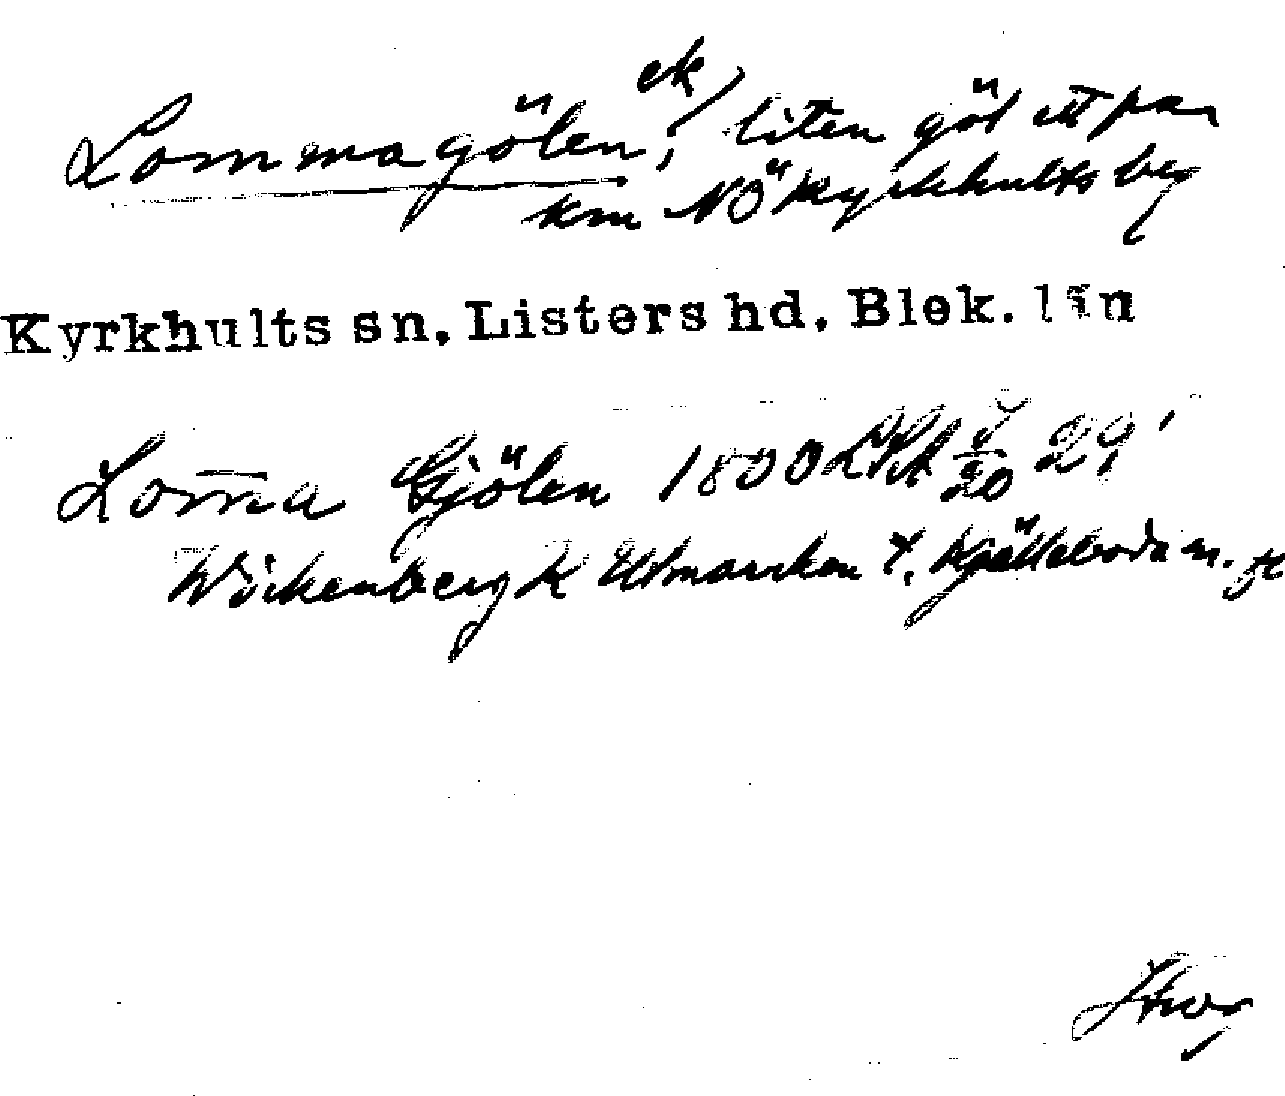 Lommagölen, ek/ liten göl ett par
km NÖ Kyrkhults by
Kyrkhults sn, Listers hd, Blek. län
Lom̄a Gjölen 1800 29'
Wickenberg K Utmarken t. Kjälleboda m. fl